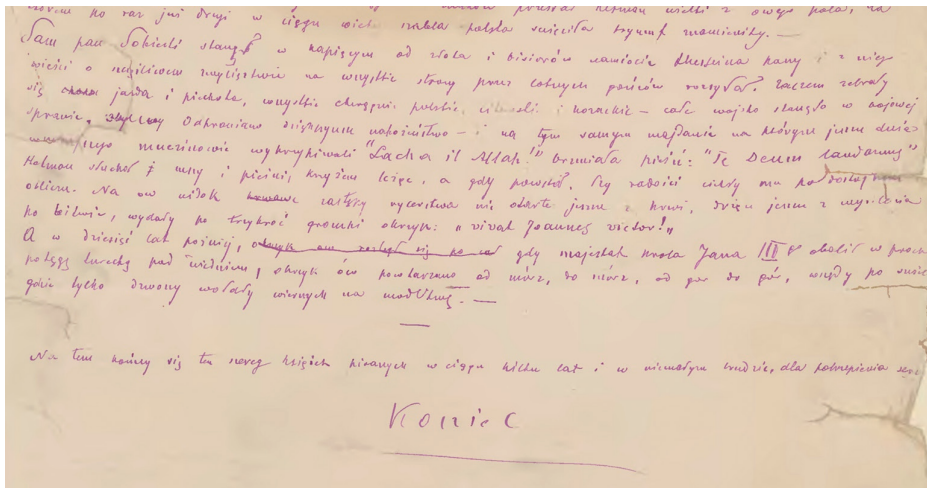 po raz już drugi w ciągu wieku szabla polska święciła tryumf znamienity. —
Sam pan Sobieski stanął w kapiącym od złota i bisiorów namiocie Husseina baszy i z niej
wieści o szczęśliwem zwycięstwie na wszystkie strony przez lotnych posłów rozsyłał. Zaczem zebrały
się jazda i piechota, wszystkie chorągwie polskie, litewskie i kozackie – całe wojsko stanęło w bojowej
sprawie. Odprawiano dziękczynne nabożeństwo – i na tym samym majdanie na którym jeszcze dnia
muezinowie wykrzykiwali "Lacha il Allah!" brzmiała pieśń: "Te Deum laudamus"
Hetman słuchał mszy i pieśni, krzyżem leżąc, a gdy powstał, łzy radości ciekły mu po dostojnem
obliczu. Na ów widok zastępy rycerstwa nie otarte jeszcze z krwi, drżące jeszcze z wysilenia
po bitwie, wydały po trzykroć gromki okrzyk: „vivat Joannes victor!"
A w dziesięć lat później, gdy majestat króla Jana III obalił w proch
potęgę turecką pod Wiedniem, okrzyk ów powtarzano od mórz, do mórz, od gór do gór, wszędy po świecie
gdzie tylko dzwony wołały wiernych na modlitwę. —
Na tem kończy się ten szereg książek pisanych w ciągu kilku lat i w niemałym trudzie, dla pokrzepienia serc
Koniec